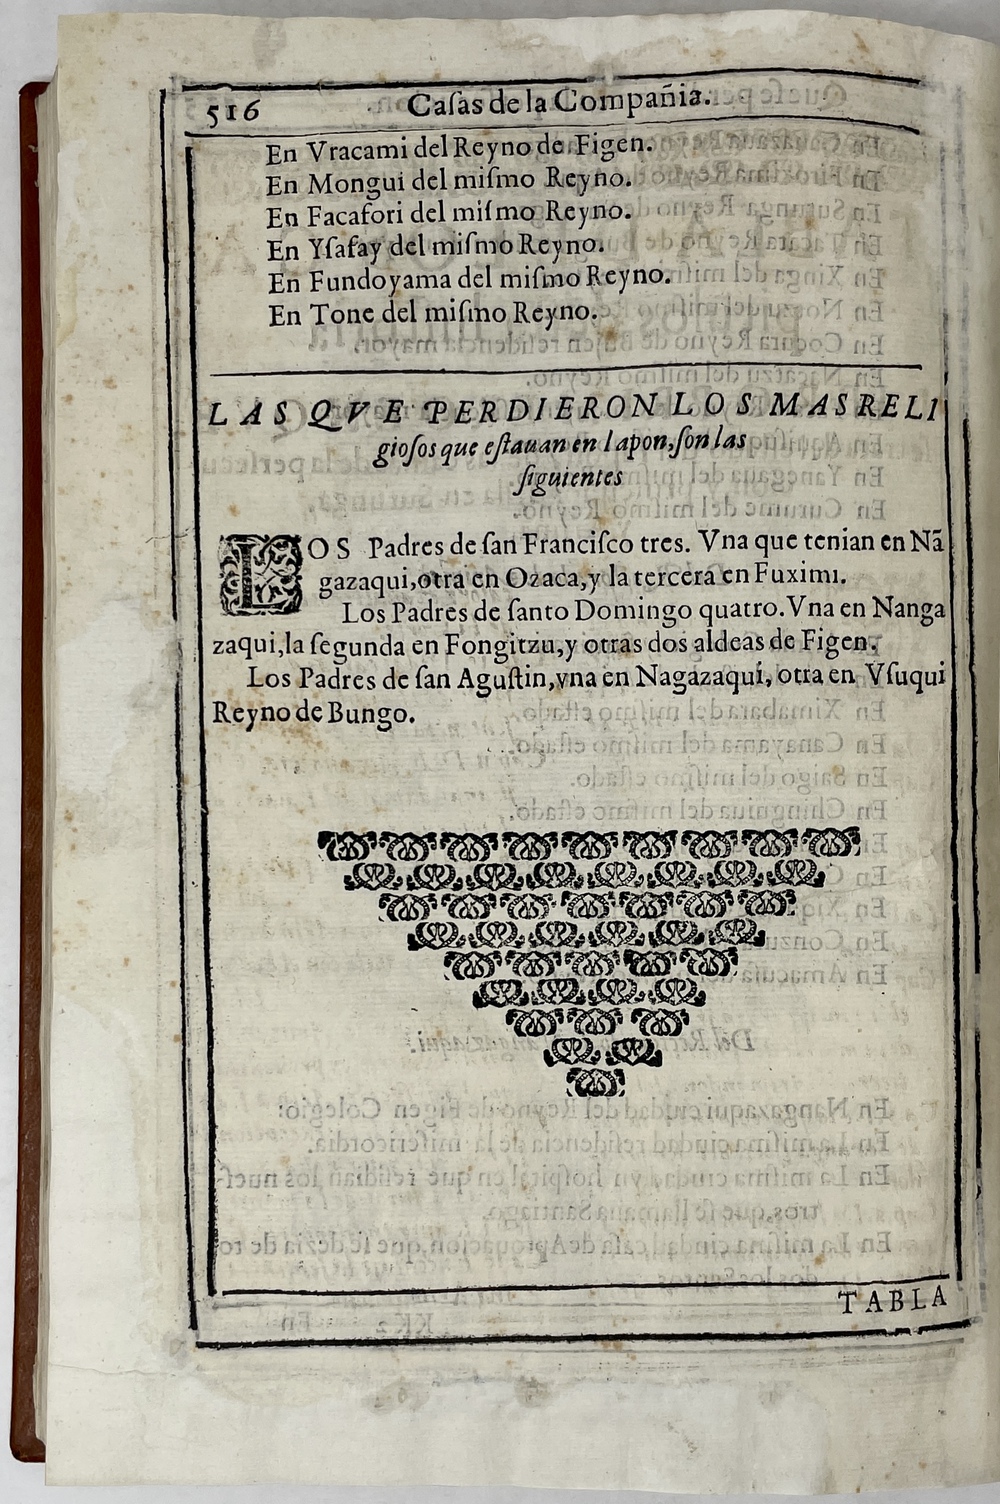 516 Caſas de la Compañia.
En Vracami del Reyno de Figen.
En Mongui del miſmo Reyno.
En Facafori del miſmo Reyno.
En Yſafay del miſmo Reyno.
En Fundoyama del miſmo Reyno.
En Tone del miſmo Reyno.
LAS QVE PERDIERON LOS MAS RELI
gioſos que eſtauan en Iapon, ſon las
ſiguientes
LOS Padres de ſan Franciſco tres. Vna que tenian en Nã
gazaqui, otra en Ozaca, y la tercera en Fuximi.
Los Padres de ſanto Domingo quatro. Vna en Nanga
zaqui, la ſegunda en Fongitzu, y otras dos aldeas de Figen.
Los Padres de ſan Aguſtin, vna en Nagazaqui, otra en Vſuqui
Reyno de Bungo.
TABLA